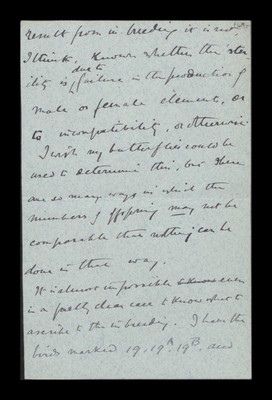 result from in-breeding it is not,
I think, known whether the ster
ility is due to failure in the production of
male or female element, or
to incompatibility, or otherwise.
I wish my butterflies could be
used to determine this, but there
are so many ways in which the
numbers of offspring may not be
comparable that nothing can be
done in that way.
It is almost impossible even
in a pretty clear case to know what to
ascribe to the in-breeding. I have the
birds marked 19, 19A, 19B, and